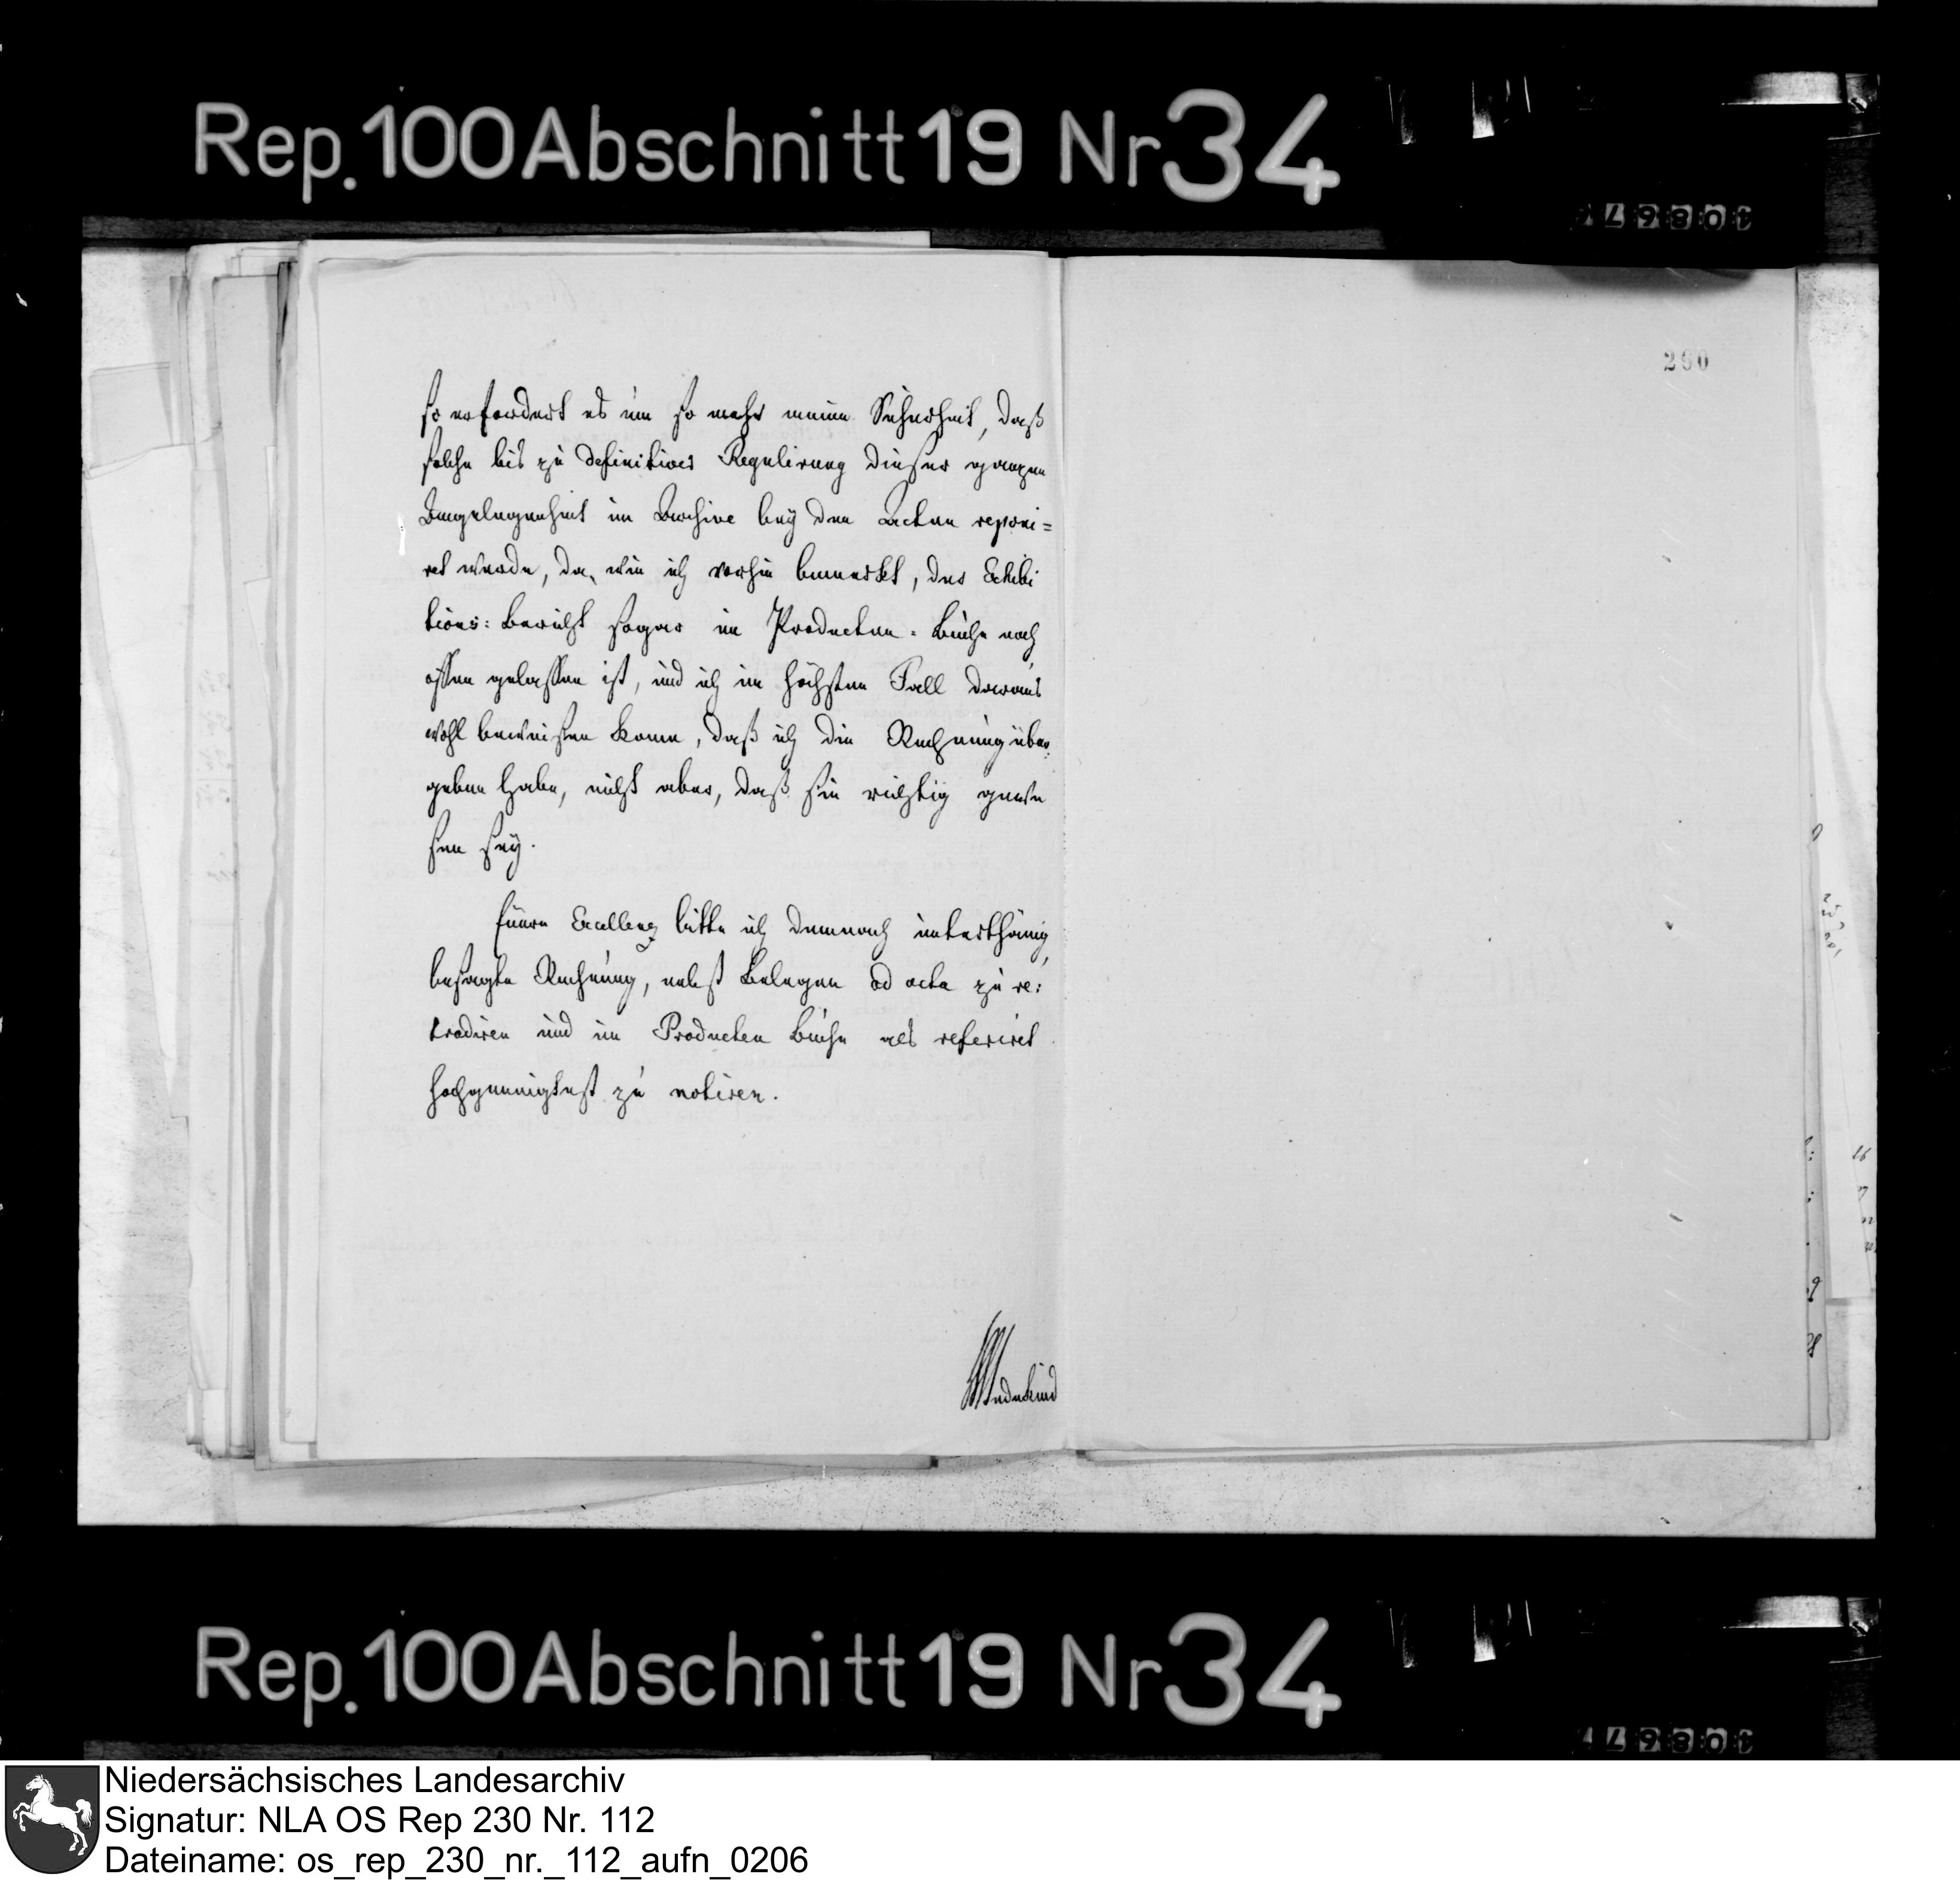 Rep. 100 Abschnitt 19 Nr 34
260
so erfordert es um so mehr meine Sicherheit, daß
solche bis zu definitiver Regulirung dieser ganzen
Angelegenheit im Archive bey den Acten reponi=
ret werde, da, wie ich vorhin bemerkt, der Exhibi
tions: Bericht sogar im Producten-Buche noch
offen gelassen ist, und ich im höchsten Fall daraus
wohl beweisen kann, daß ich die Rechnung über:
geben habe, nicht aber, daß sie richtig gewe
sen sey.
Euere Excellenz bitte ich demnach unterthänig,
besagte Rechnung, nebst Belegen ad acta zu re:
tradiren und im Producten Buche als referiret
hochgeneigtest zu notiren.
Wedekind
Rep. 100 Abschnitt 19 Nr 34
Niedersächsisches Landesarchiv
Signatur: NLA OS Rep 230 Nr. 112
Dateiname: os_rep_230_nr._112_aufn_0206